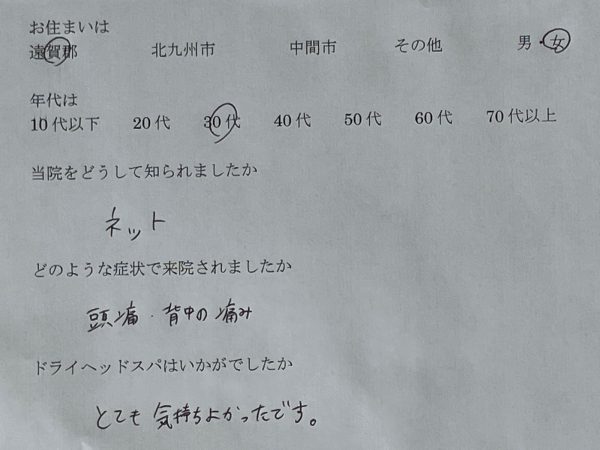 お住まいは
遠賀郡 北九州市 中間市 その他 男・女
年代は
10代以下 20代 30代 40代 50代 60代 70代以上
当院をどうして知られましたか
ネット
どのような症状で来院されましたか
頭痛・背中の痛み
ドライヘッドスパはいかがでしたか
とても気持ちよかったです。